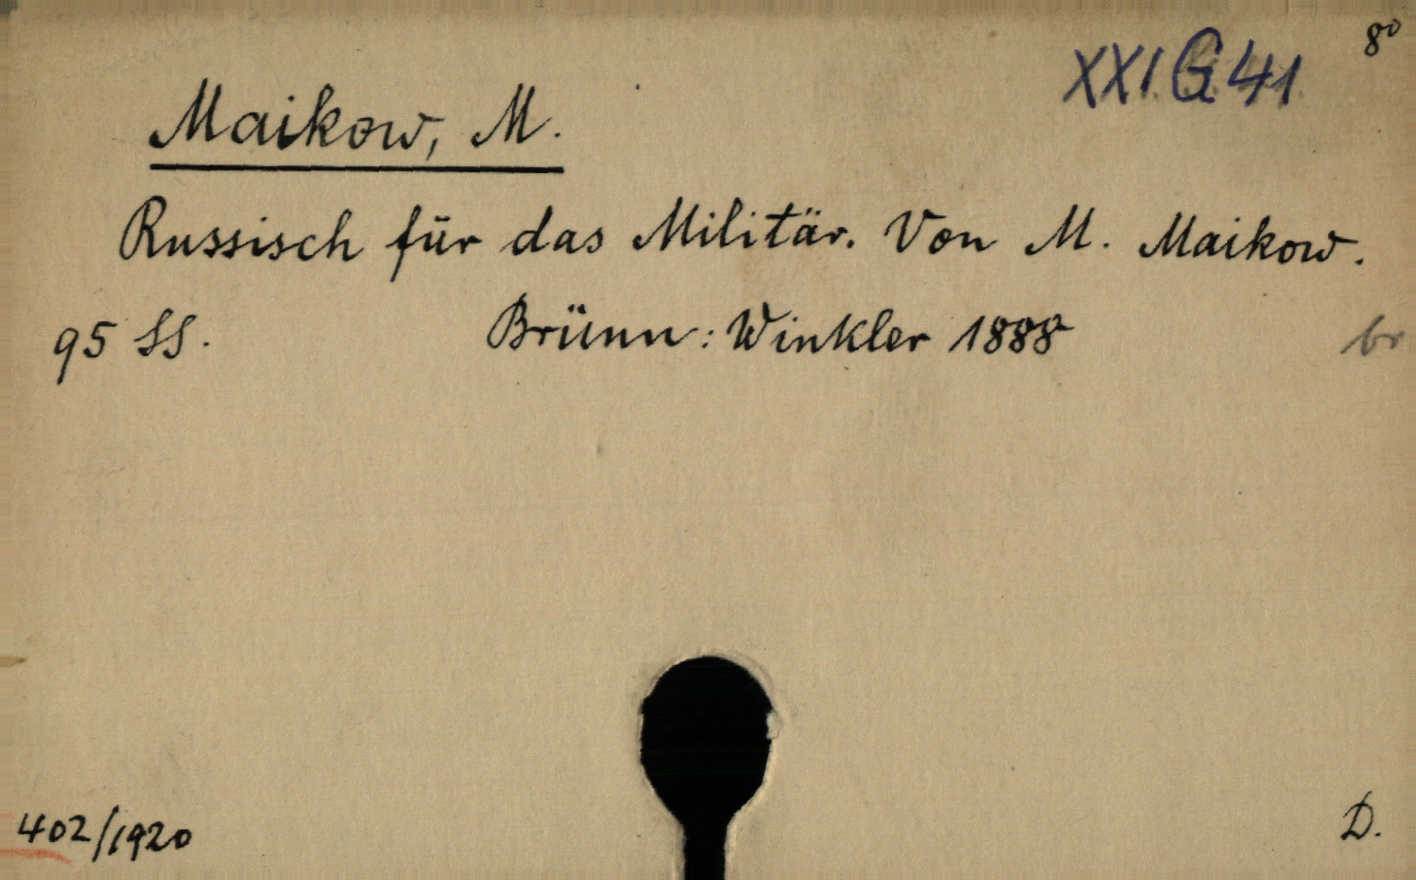 8°
XXI G 41
Maikow, M.
Russisch für das Militär. Von M. Maikow.
95 SS. Brünn: Winkler 1888 br
402/1920 D.